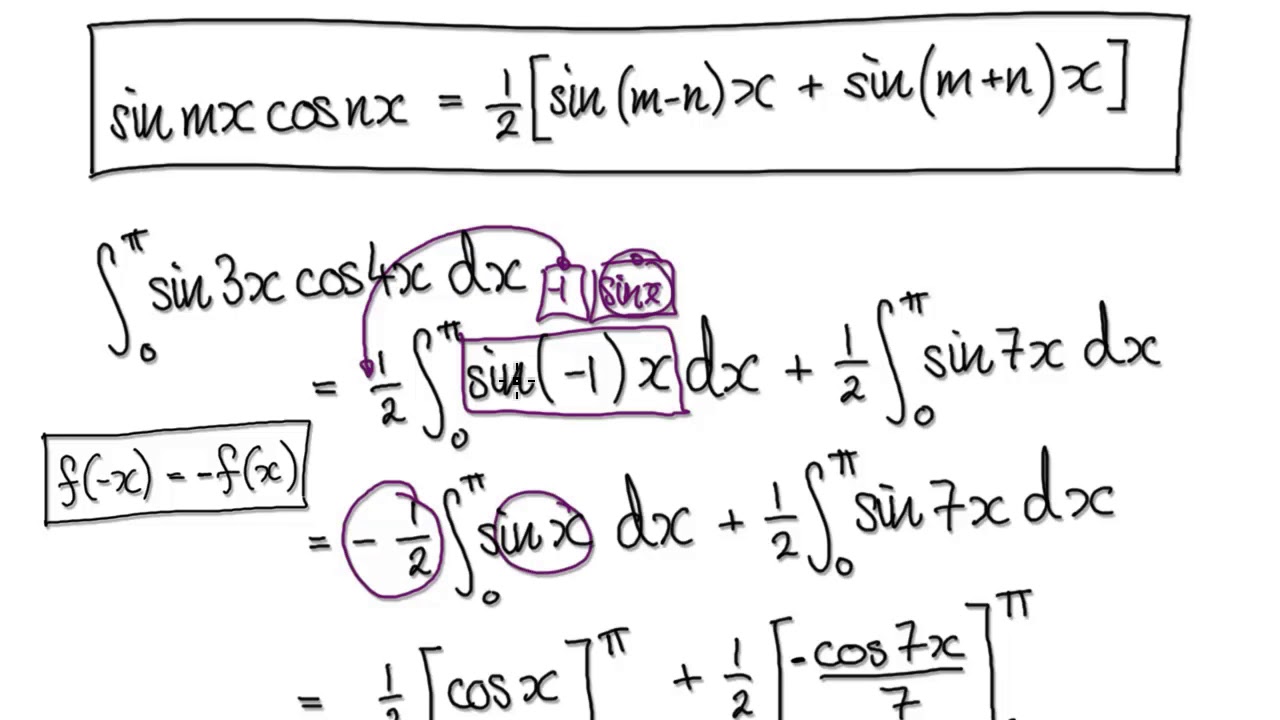 sin mx cos nx = 1/2 [sin (m-n)x + sin (m+n)x]
∫₀^π sin 3x cos 4x dx
-1 sin x
= 1/2 ∫₀^π sin(-1)x dx + 1/2 ∫₀^π sin 7x dx
f(-x) = -f(x)
= -1/2 ∫₀^π sin x dx + 1/2 ∫₀^π sin 7x dx
= 1/2 [cos x]^π + 1/2 [-cos 7x / 7]^π